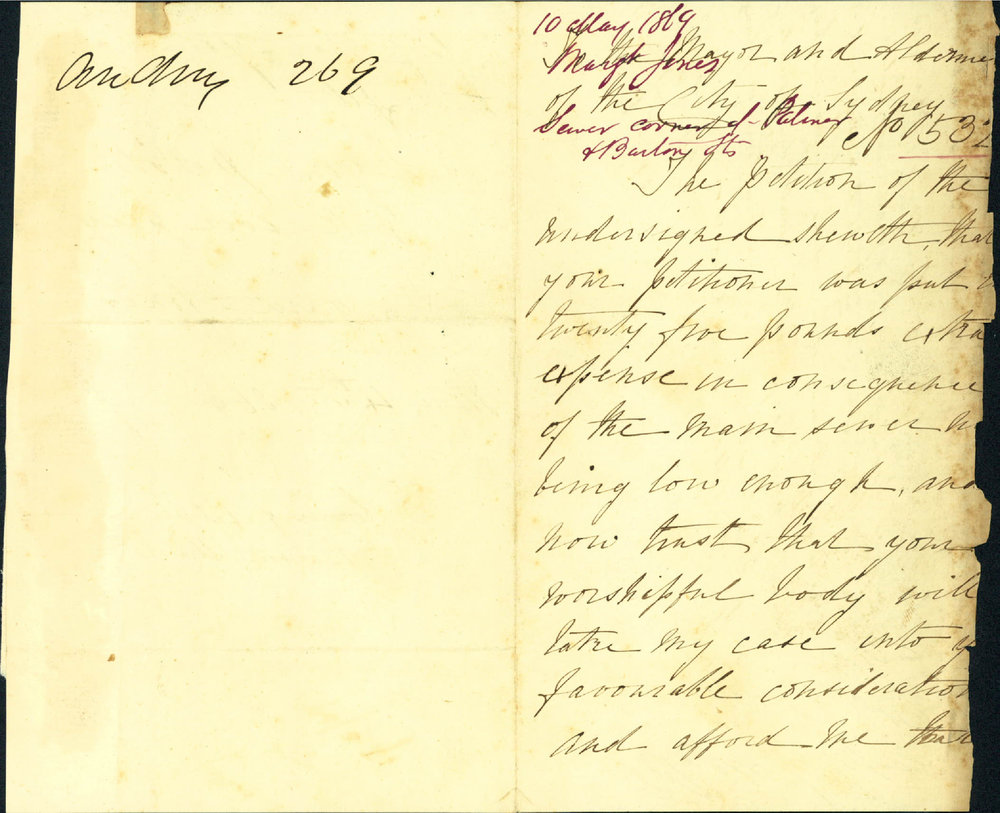 269
10 May 1869
To the Mayor and Aldermen
Margt Jones
of the City of Sydney
Sewer corner of Palmer
& Burton Sts
No 532
The Petition of the
undersigned sheweth, that
your Petitioner was put
twenty five pounds extra
expense in consequence
of the main sewer n
being low enough, and
now trust that your
worshipful body will
take my case into y
favourable consideration
and afford me that